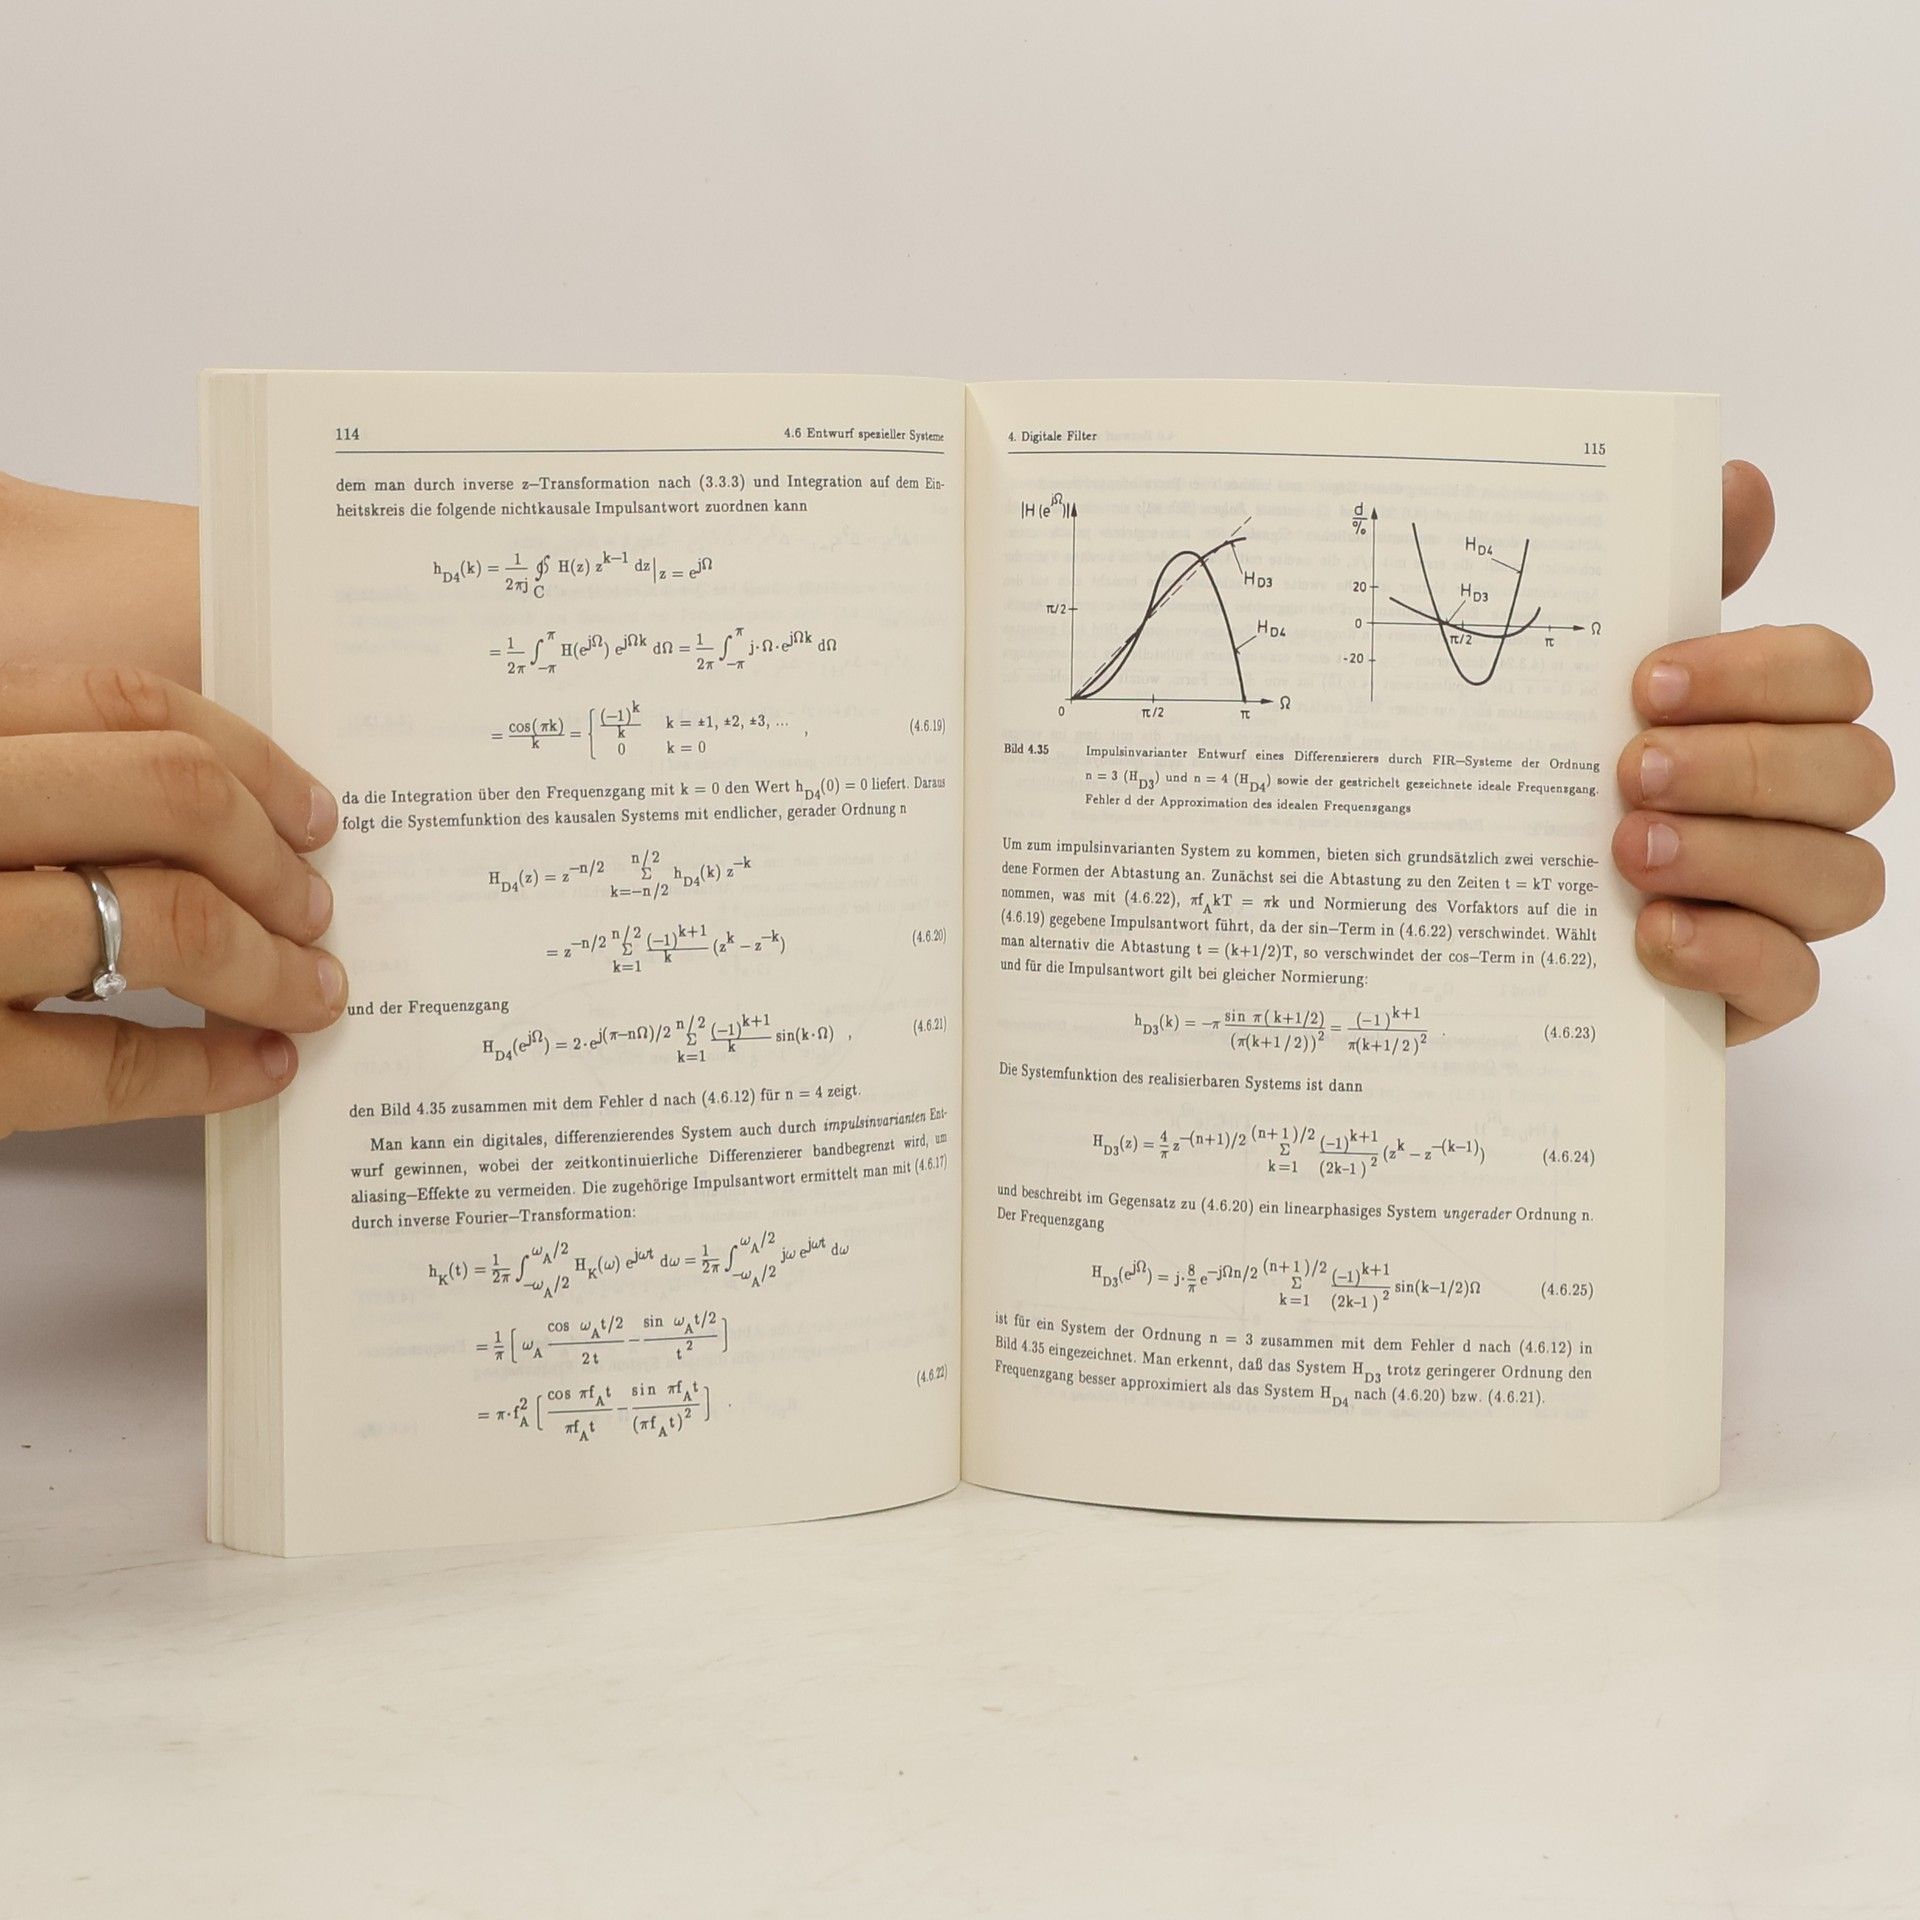 114 4.6 Entwurf spezieller Systeme
dem man durch inverse z–Transformation nach (3.3.3) und Integration auf dem Ein-
heitskreis die folgende nichtkausale Impulsantwort zuordnen kann
h_D4(k) = 1/(2πj) ∮_C H(z) z^(k–1) dz|_(z = e^(jΩ))
= 1/(2π) ∫_(–π)^π H(e^(jΩ)) e^(jΩk) dΩ = 1/(2π) ∫_(–π)^π j·Ω·e^(jΩk) dΩ
= cos(πk)/k = { (–1)^k/k k = ±1, ±2, ±3, ... , (4.6.19)
0 k = 0
da die Integration über den Frequenzgang mit k = 0 den Wert h_D4(0) = 0 liefert. Daraus
folgt die Systemfunktion des kausalen Systems mit endlicher, gerader Ordnung n
H_D4(z) = z^(–n/2) Σ_(k=–n/2)^(n/2) h_D4(k) z^(–k)
= z^(–n/2) Σ_(k=1)^(n/2) (–1)^(k+1)/k (z^k – z^(–k)) (4.6.20)
und der Frequenzgang
H_D4(e^(jΩ)) = 2·e^(j(π–nΩ)/2) Σ_(k=1)^(n/2) (–1)^(k+1)/k sin(k·Ω) , (4.6.21)
den Bild 4.35 zusammen mit dem Fehler d nach (4.6.12) für n = 4 zeigt.
Man kann ein digitales, differenzierendes System auch durch impulsinvarianten Ent-
wurf gewinnen, wobei der zeitkontinuierliche Differenzierer bandbegrenzt wird, um
aliasing–Effekte zu vermeiden. Die zugehörige Impulsantwort ermittelt man mit (4.6.17)
durch inverse Fourier–Transformation:
h_K(t) = 1/(2π) ∫_(–ω_A/2)^(ω_A/2) H_K(ω) e^(jωt) dω = 1/(2π) ∫_(–ω_A/2)^(ω_A/2) jω e^(jωt) dω
= 1/π [ ω_A cos ω_A t/2 / 2t – sin ω_A t/2 / t^2 ]
= π·f_A^2 [ cos πf_A t / πf_A t – sin πf_A t / (πf_A t)^2 ] . (4.6.22)
4. Digitale Filter 115
|H(e^(jΩ))|
π/2
0
π/2
π
Ω
H_D3
H_D4
d/%
20
0
-20
H_D4
H_D3
π/2
π
Ω
Bild 4.35 Impulsinvarianter Entwurf eines Differenzierers durch FIR–Systeme der Ordnung
n = 3 (H_D3) und n = 4 (H_D4) sowie der gestrichelt gezeichnete ideale Frequenzgang.
Fehler d der Approximation des idealen Frequenzgangs
Um zum impulsinvarianten System zu kommen, bieten sich grundsätzlich zwei verschie-
dene Formen der Abtastung an. Zunächst sei die Abtastung zu den Zeiten t = kT vorge-
nommen, was mit (4.6.22), πf_A kT = πk und Normierung des Vorfaktors auf die in
(4.6.19) gegebene Impulsantwort führt, da der sin–Term in (4.6.22) verschwindet. Wählt
man alternativ die Abtastung t = (k+1/2)T, so verschwindet der cos–Term in (4.6.22),
und für die Impulsantwort gilt bei gleicher Normierung:
h_D3(k) = –π sin π(k+1/2) / (π(k+1/2))^2 = (–1)^(k+1) / π(k+1/2)^2 . (4.6.23)
Die Systemfunktion des realisierbaren Systems ist dann
H_D3(z) = 4/π z^(–(n+1)/2) Σ_(k=1)^((n+1)/2) (–1)^(k+1)/(2k–1)^2 (z^k – z^(–(k–1))) (4.6.24)
und beschreibt im Gegensatz zu (4.6.20) ein linearphasiges System ungerader Ordnung n.
Der Frequenzgang
H_D3(e^(jΩ)) = j·8/π e^(–jΩn/2) Σ_(k=1)^((n+1)/2) (–1)^(k+1)/(2k–1)^2 sin(k–1/2)Ω (4.6.25)
ist für ein System der Ordnung n = 3 zusammen mit dem Fehler d nach (4.6.12) in
Bild 4.35 eingezeichnet. Man erkennt, daß das System H_D3 trotz geringerer Ordnung den
Frequenzgang besser approximiert als das System H_D4 nach (4.6.20) bzw. (4.6.21).